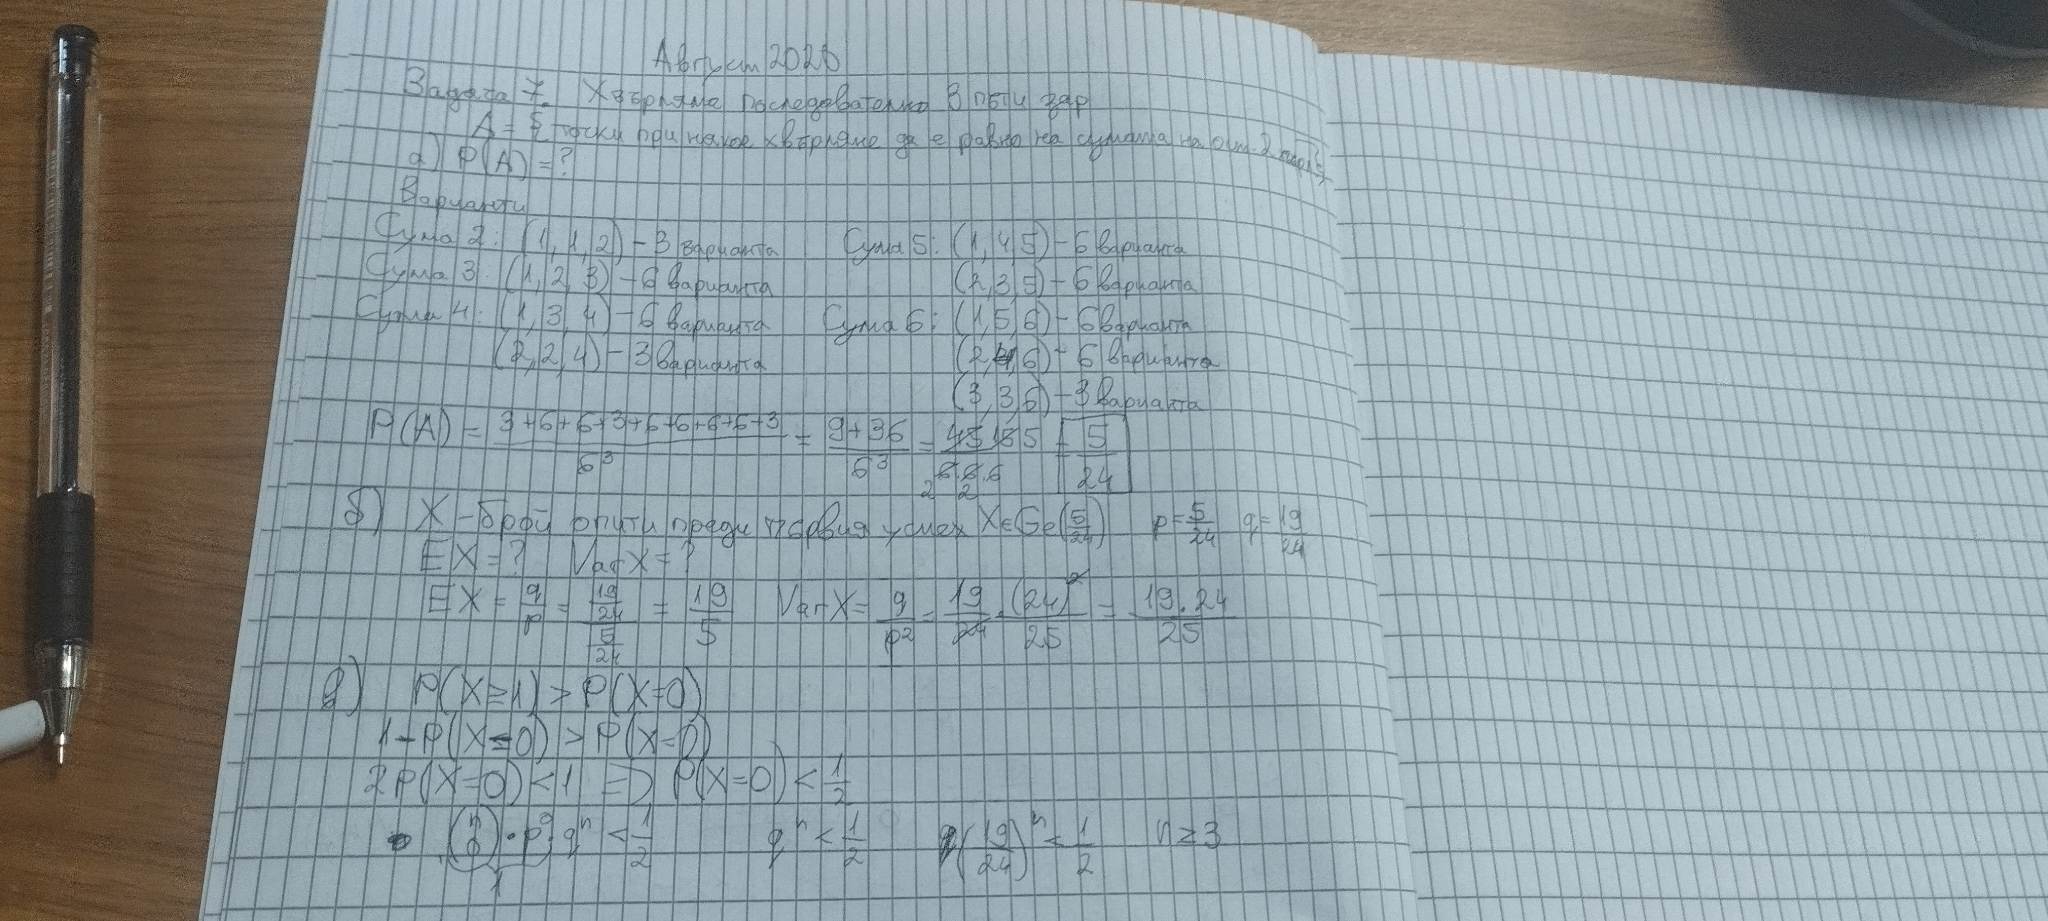 Август 2020
Задача 7. Хвърляме последователно 3 пъти зар
A = { точки при някое хвърляне да е равно на сумата на ост. 2
а) P(A) = ?
Варианти
Сума 2: (1, 1, 2) - 3 варианта Сума 5: (1, 4, 5) - 6 варианта
Сума 3: (1, 2, 3) - 6 варианта (2, 3, 5) - 6 варианта
Сума 4: (1, 3, 4) - 6 варианта Сума 6: (1, 5, 6) - 6 варианта
(2, 2, 4) - 3 варианта (2, 4, 6) - 6 варианта
(3, 3, 6) - 3 варианта
P(A) = (3+6+6+3+6+6+6+6+3)/6³ = (9+36)/6³ = 45 15 5/6.6.6 2 2 = 5/24
б) X - брой опити преди първия успех X∈Ge(5/24) p = 5/24 q = 19/24
EX = ? VarX = ?
EX = q/p = (19/24)/(5/24) = 19/5 VarX = q/p² = 19/24 . (24)²/25 = 19.24/25
в) P(X≥1) > P(X=0)
1 - P(X=0) > P(X=0)
2P(X=0) < 1 => P(X=0) < 1/2
(n 0) . p⁰ . qⁿ < 1/2 qⁿ < 1/2 (19/24)ⁿ < 1/2 n ≥ 3
1